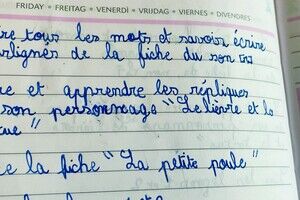 FRIDAY • FREITAG • VENERDÌ • VRIJDAG • VIERNES • DIVENDRES
re tous les mots et savoir écrire
rlignés de la fiche du son
re et apprendre les répliques
son personnage "Le lièvre et la
tue"
e la fiche "La petite poule"